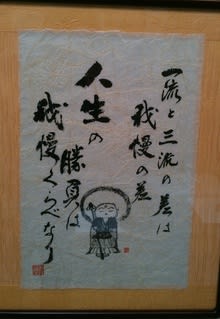 一流と三流の差は
我慢の差
人生の
勝負は
我慢くらべなり